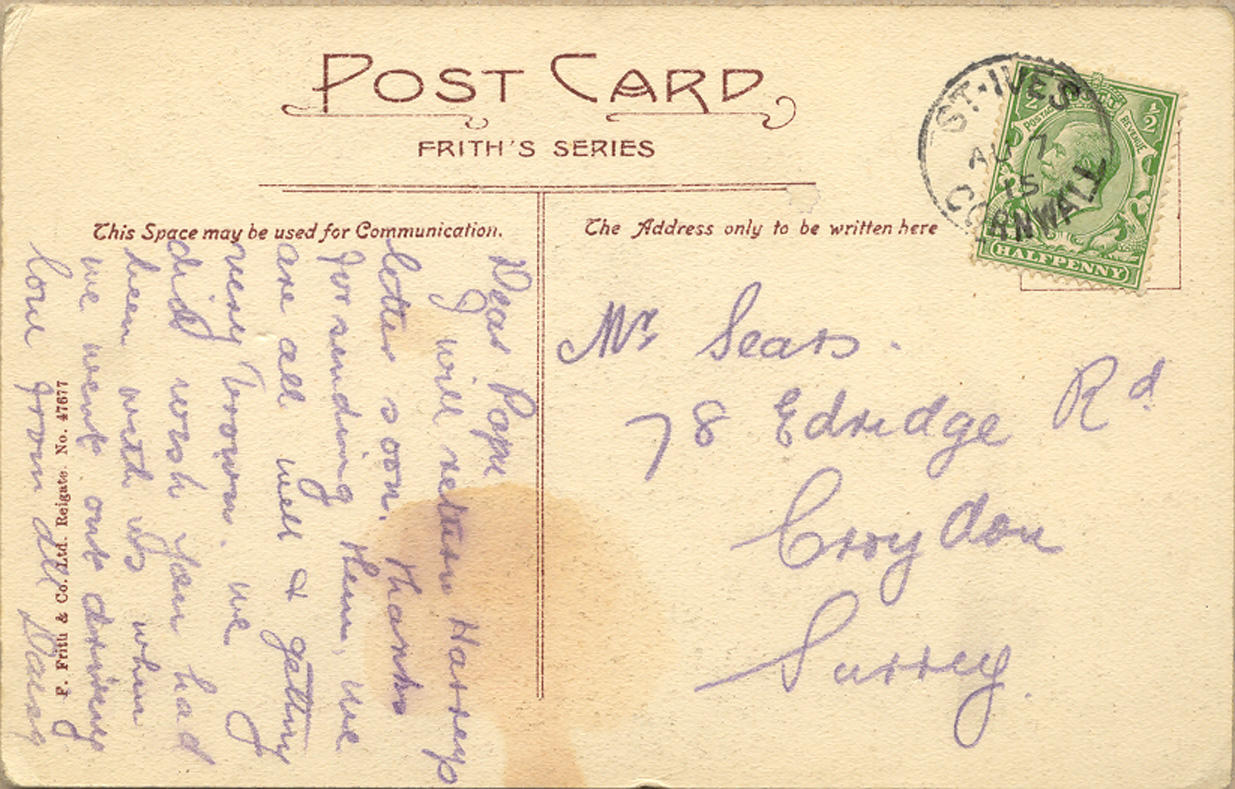 POST CARD
FRITH'S SERIES
This Space may be used for Communication.
The Address only to be written here
ST. IVES
AU 7
15
CORNWALL
POSTAGE
REVENUE
½
½
HALFPENNY
Dear Papa
I will return Harrys
letter soon. thanks
for sending them, we
are all well & getting
very brown. we
did wish you had
been with us when
we went out driving
love from all Daisy
F. Frith & Co. Ltd. Reigate. No. 47677
Mr Sears.
78 Edridge Rd
Croydon
Surrey.